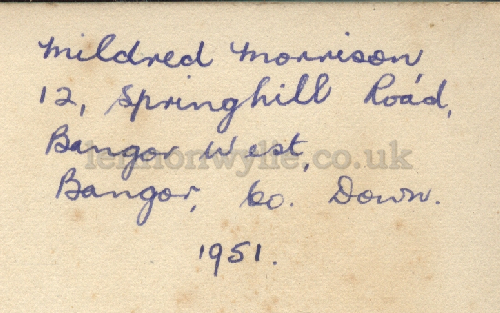 Mildred Morrison
12, Springhill Road,
Bangor West,
lennonwylie.co.uk
Bangor, Co. Down.
1951.